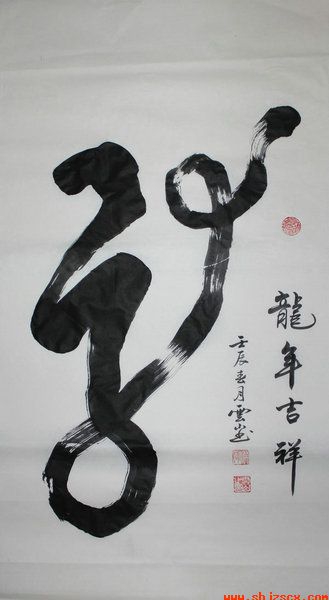 龍
龍年吉祥
壬辰春月雲
www.shjzscx.com